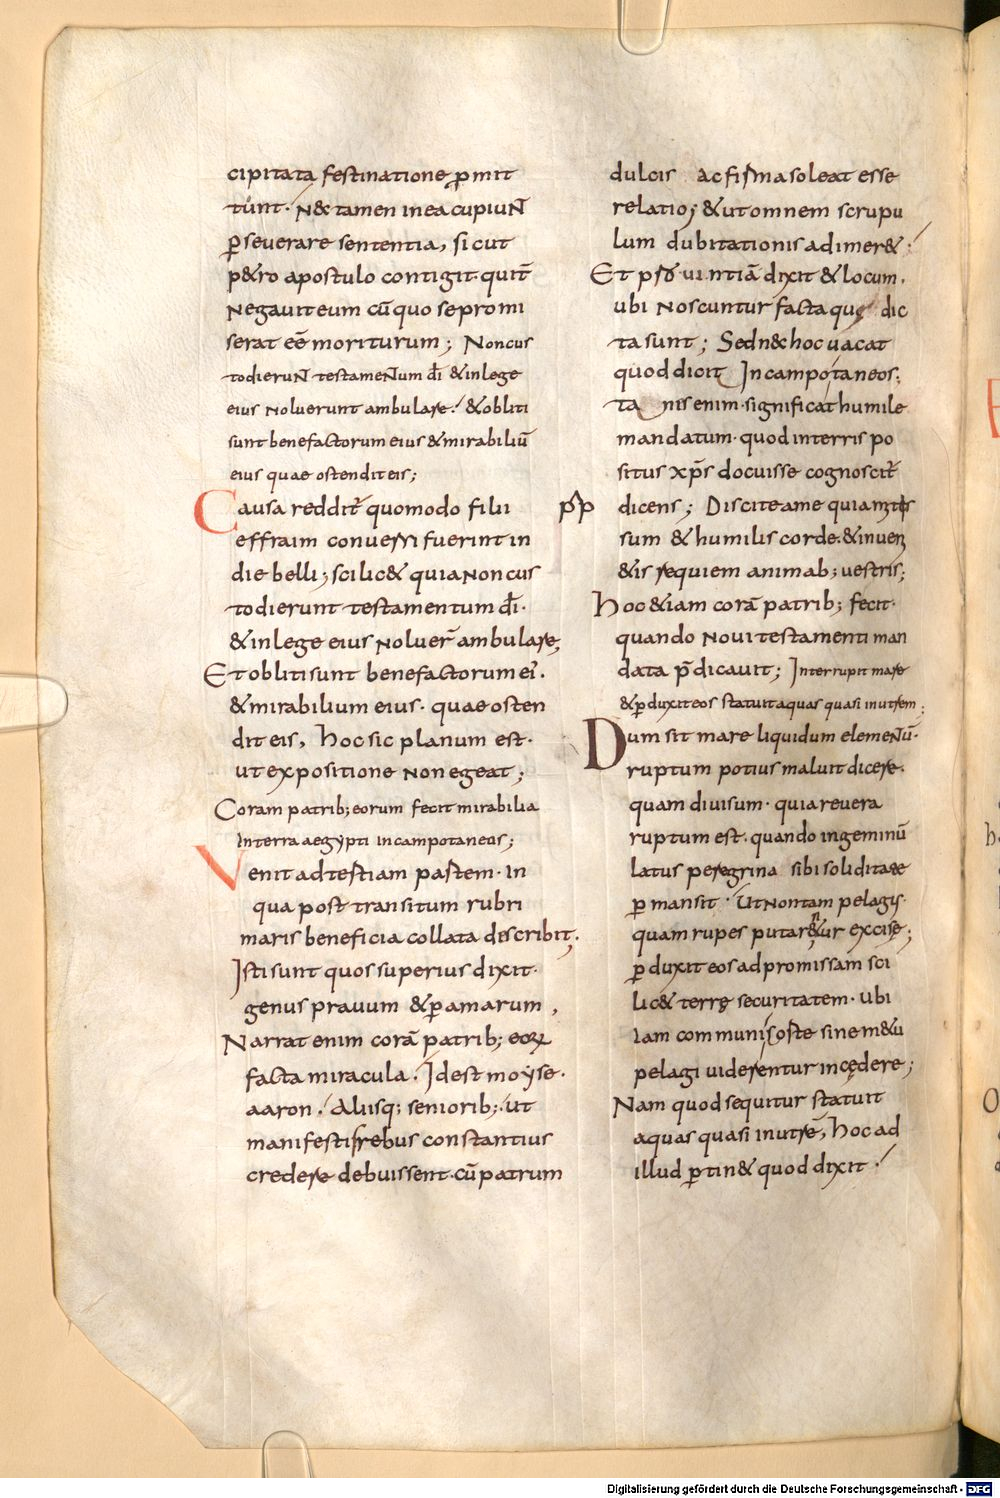 cipitata festinatione ꝑmit
tunt· N& tamen in ea cupiunt
ꝑseverare sententia, sicut
p&ro apostulo contigit· qui t̄
negavit eum cū quo se promi
serat eē moriturum; Non cus
todierunt testamentum dī & in lege
eius noluerunt ambulare· & obliti
sunt benefactorum eius & mirabiliū
eius quae ostendit eis;
Causa reddit̄ quomodo filii
effraim conversi fuerint in
die belli; scilic& quia non cus
todierunt testamentum dī·
& in lege eius noluer̄ ambulare;
Et obliti sunt benefactorum ei·
& mirabilium eius· quae osten
dit eis, hoc sic planum est·
ut expositione non egeat;
Coram patrib; eorum fecit mirabilia
in terra aegypti in campo taneos;
Venit ad testiam partem· in
qua post transitum rubri
maris beneficia collata describit;
Isti sunt quos superius dixit·
genus pravum & ꝑamarum,
Narrat enim corā patrib; eoꝝ
facta miracula· Idest moyse·
aaron· Aliisq; seniorib;· ut
manifestis rebus constantius
credere debuissent· cū patrum
dulcis ac firma soleat esse
relatio; & ut omnem scrupu
lum dubitationis adimer&·
Et post vi intiā dixit & locum·
ubi noscuntur facta quę dic
ta sunt; Sed n& hoc vacat
quod dicit In campo taneos;
ta nis enim· significat humile
mandatum· quod in terris po
situs xp̄s docuisse cognoscit̄
dicens; Discite a me quia mitis
sum & humilis corde· & inveni
&is requiem animab; vestris;
pp
Hoc &iam corā patrib; fecit·
quando novi testamenti man
data p̄dicavit; Interrupit mare
& ꝑduxit eos statuit aquas quasi in utrem;
Dum sit mare liquidum elementū·
ruptum potius maluit dicere·
quam divisum· quia revera
ruptum est· quando in geminū
latus peregrina sibi soliditate
ꝑmansit· Ut non tam pelagis·
quam rupes putarentur excisę;
ꝑduxit eos ad promissam sci
lic& terrę securitatem· ubi
iam communis hoste sine m&u
pelagi viderentur incędere;
Nam quod sequitur statuit
aquas quasi in utrē, hoc ad
illud ꝑtin& quod dixit·
Digitalisierung gefördert durch die Deutsche Forschungsgemeinschaft - DFG